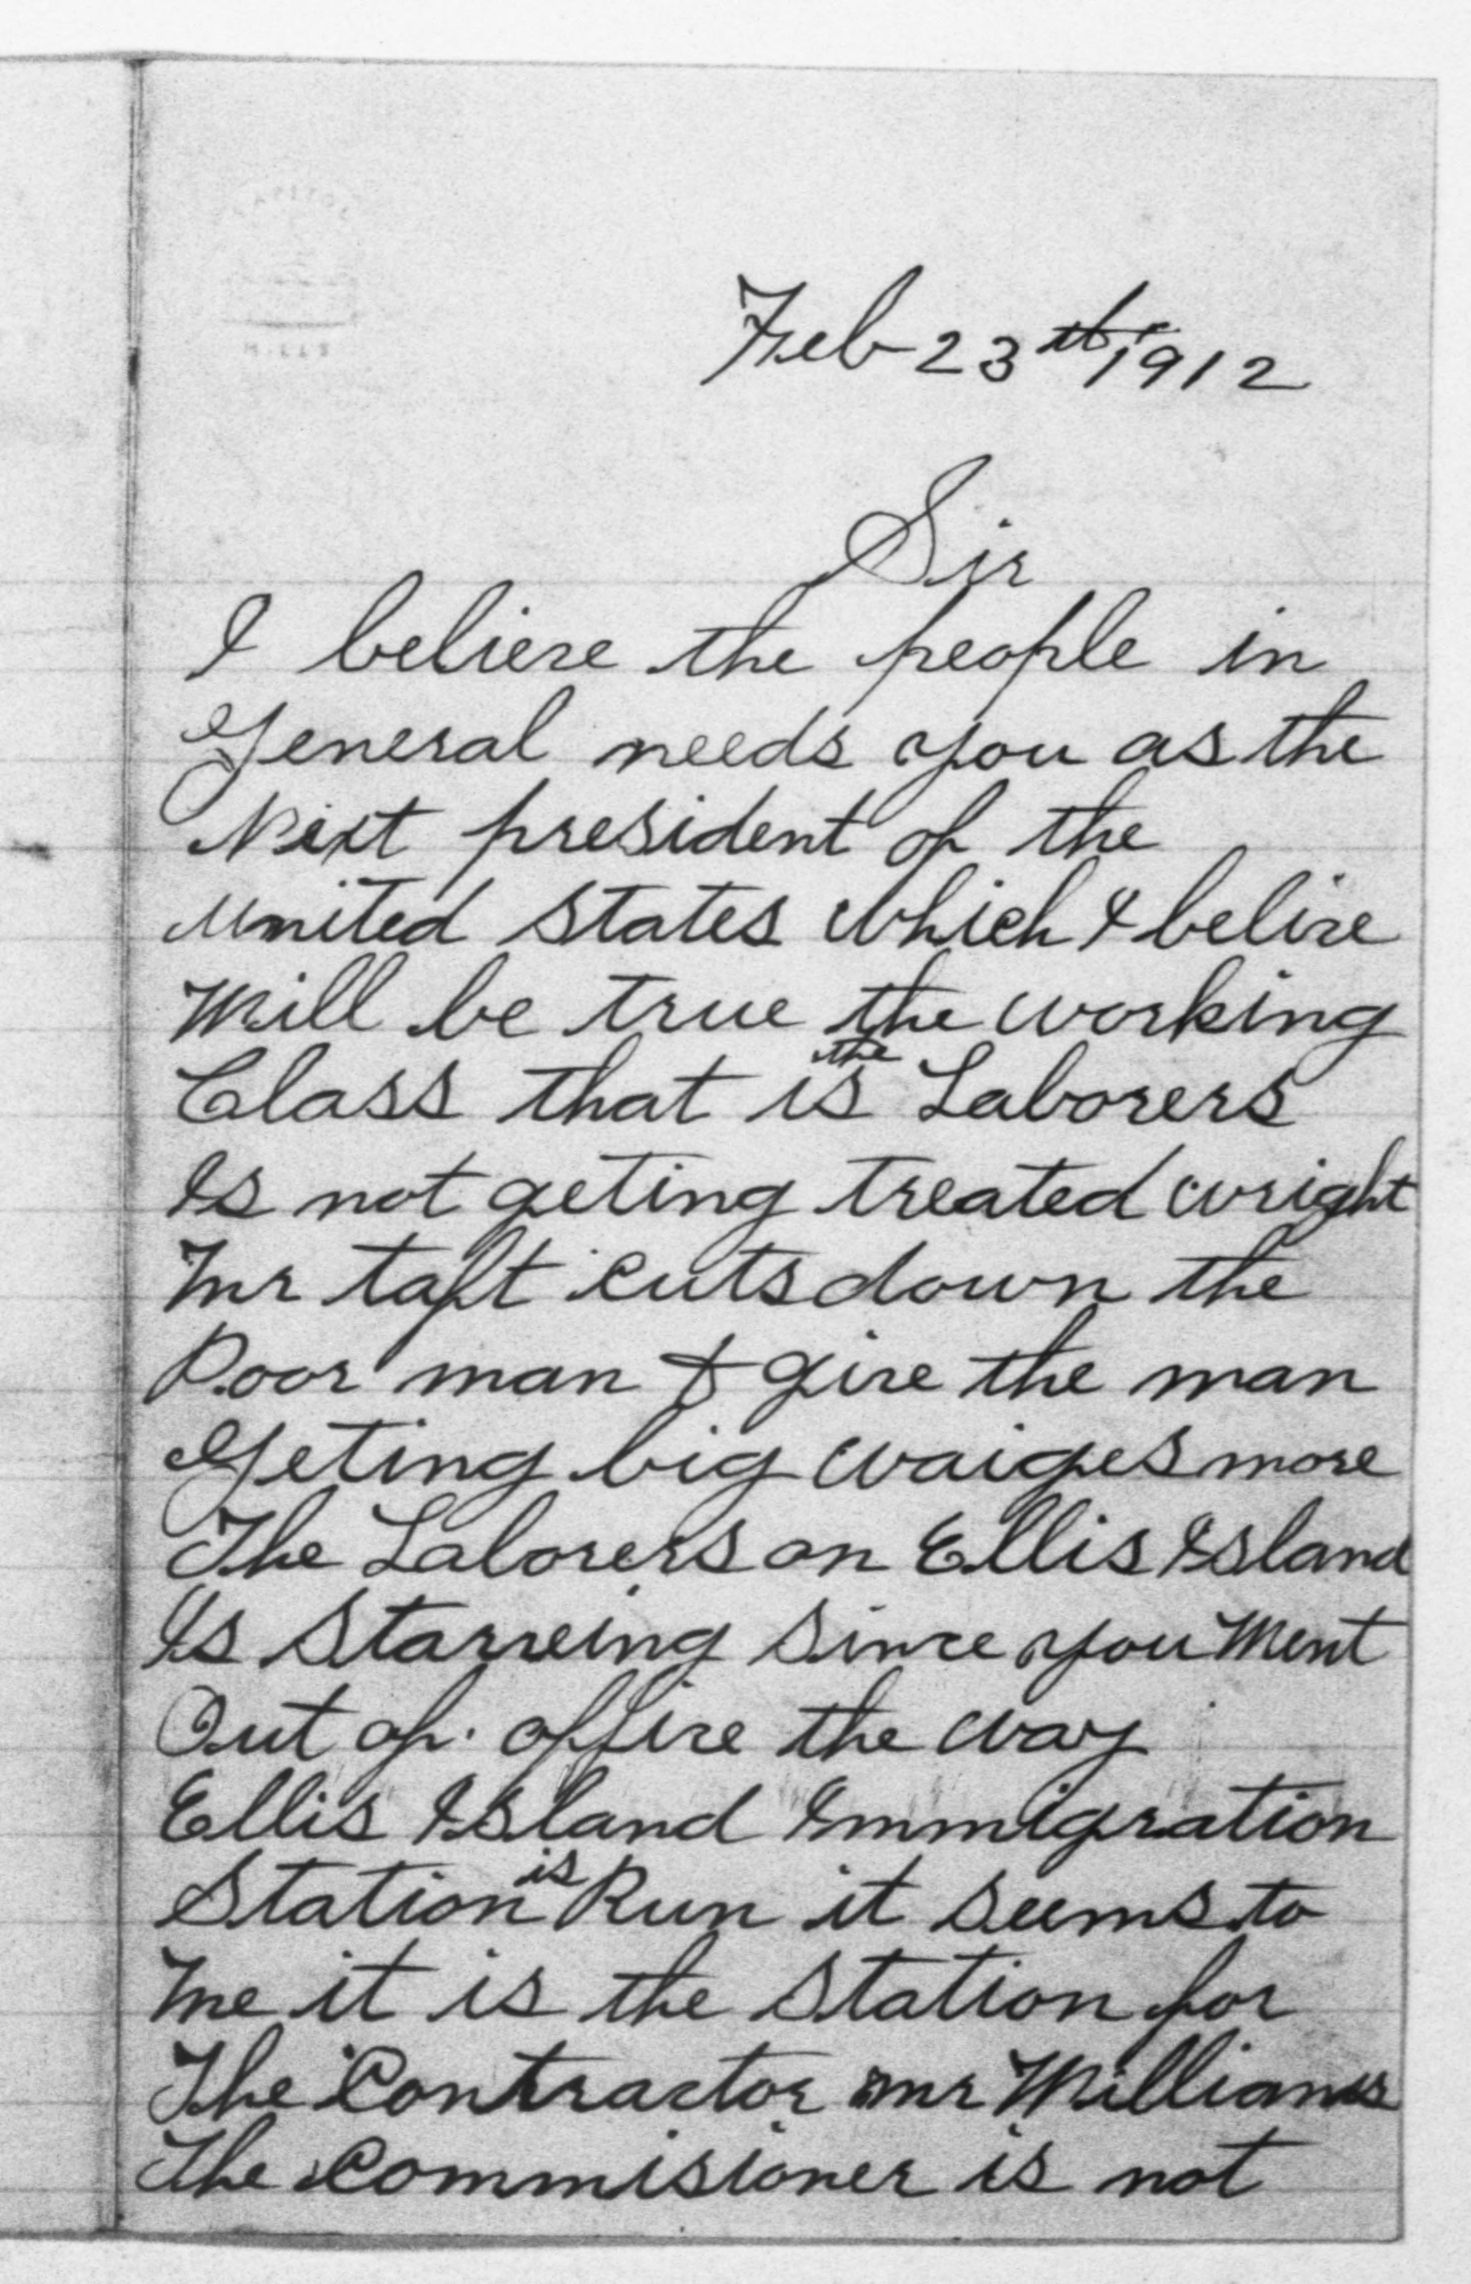 Feb 23th 1912
Sir
I believe the people in
General needs you as the
Next president of the
United States which I belive
Will be true the working
the
Class that is Laborers
Is not geting treated wright
Mr taft cuts down the
Poor man & give the man
Geting big waiges more
The Laborers on Ellis Island
Is Starveing Since you Went
Out of office the way
Ellis Island Immigration
is
Station Run it seems to
Me it is the Station for
The Contractor mr Williams
The Commisioner is not